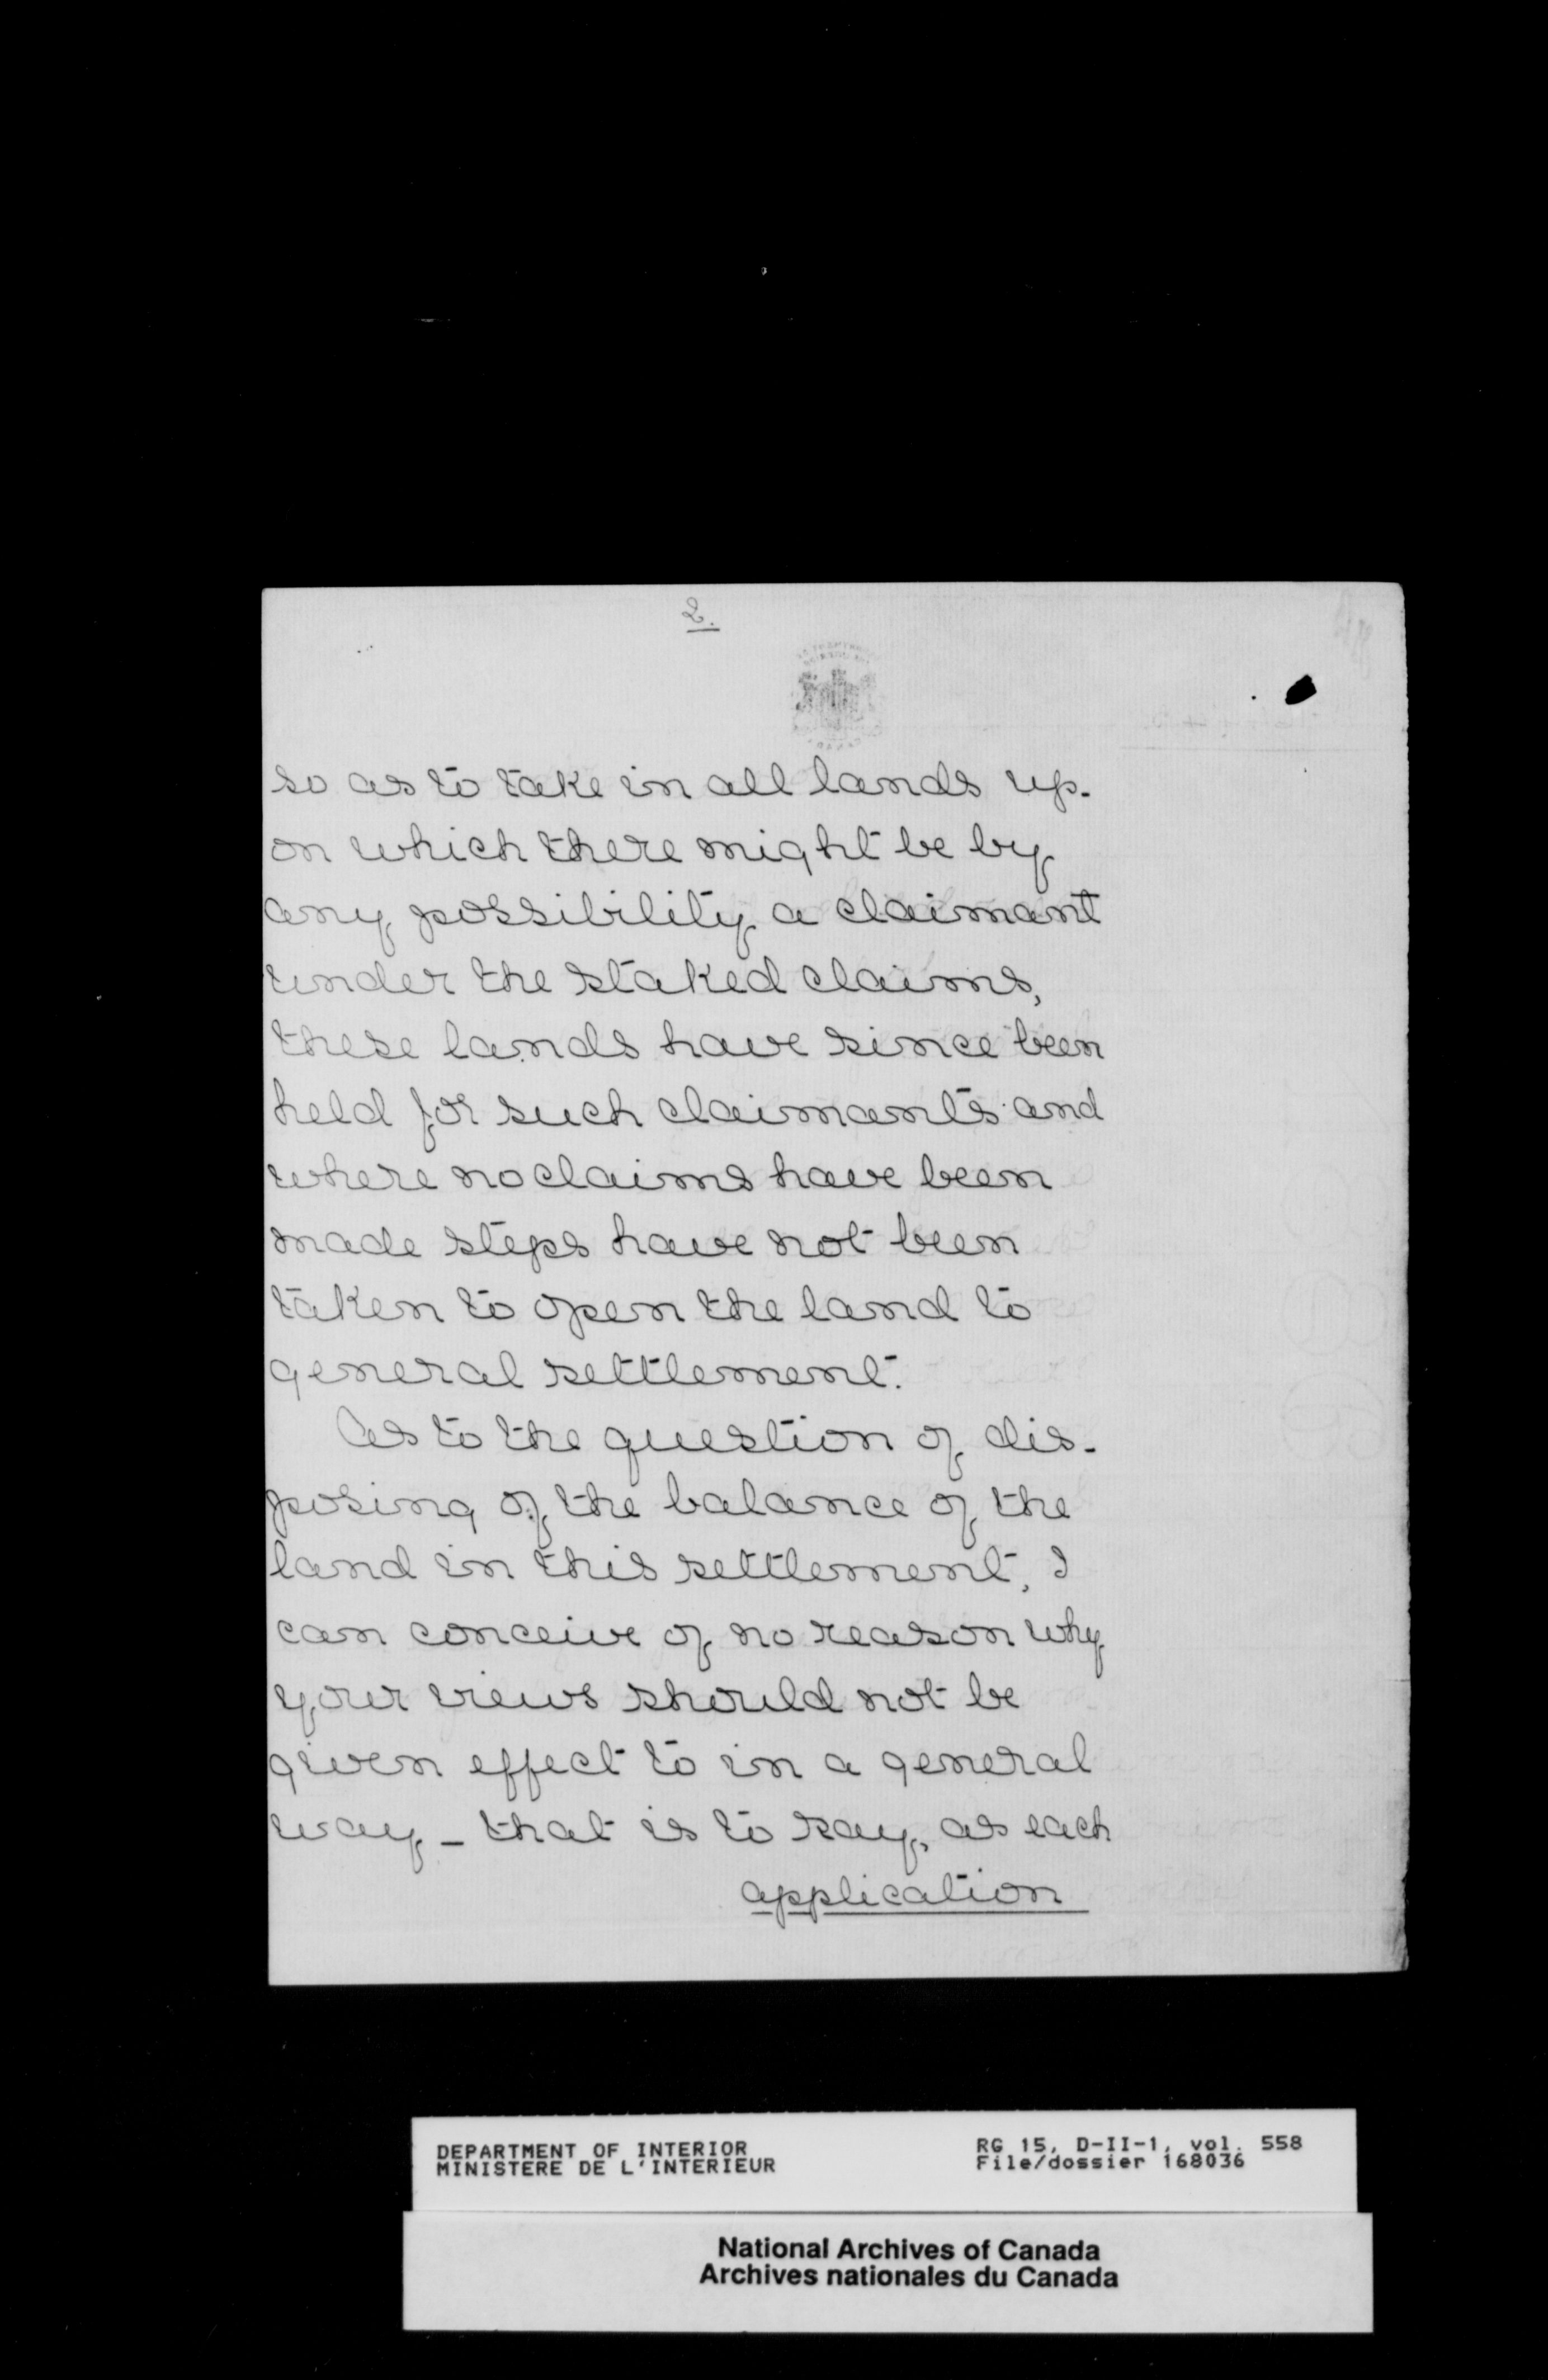 2.
so as to take in all lands up-
on which there might be by
any possibility a claimant
under the staked claims,
these lands have since been
held for such claimants and
where no claims have been
made steps have not been
taken to open the land to
general settlement.
As to the question of dis-
posing of the balance of the
land in this settlement, I
can conceive of no reason why
your views should not be
given effect to in a general
way - that is to say, as each
application
DEPARTMENT OF INTERIOR
MINISTERE DE L'INTERIEUR
RG 15, D-II-1, vol. 558
File/dossier 168036
National Archives of Canada
Archives nationales du Canada